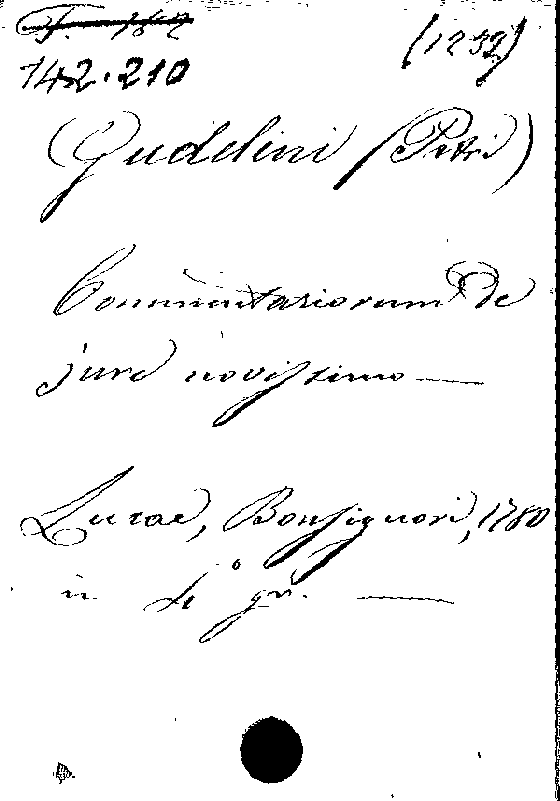 (1232)
142.210
Gudelini (Petri)
Commentariorum De
jure novissimo —
Lucae, Bonsignori, 1780
in 4° gr. —